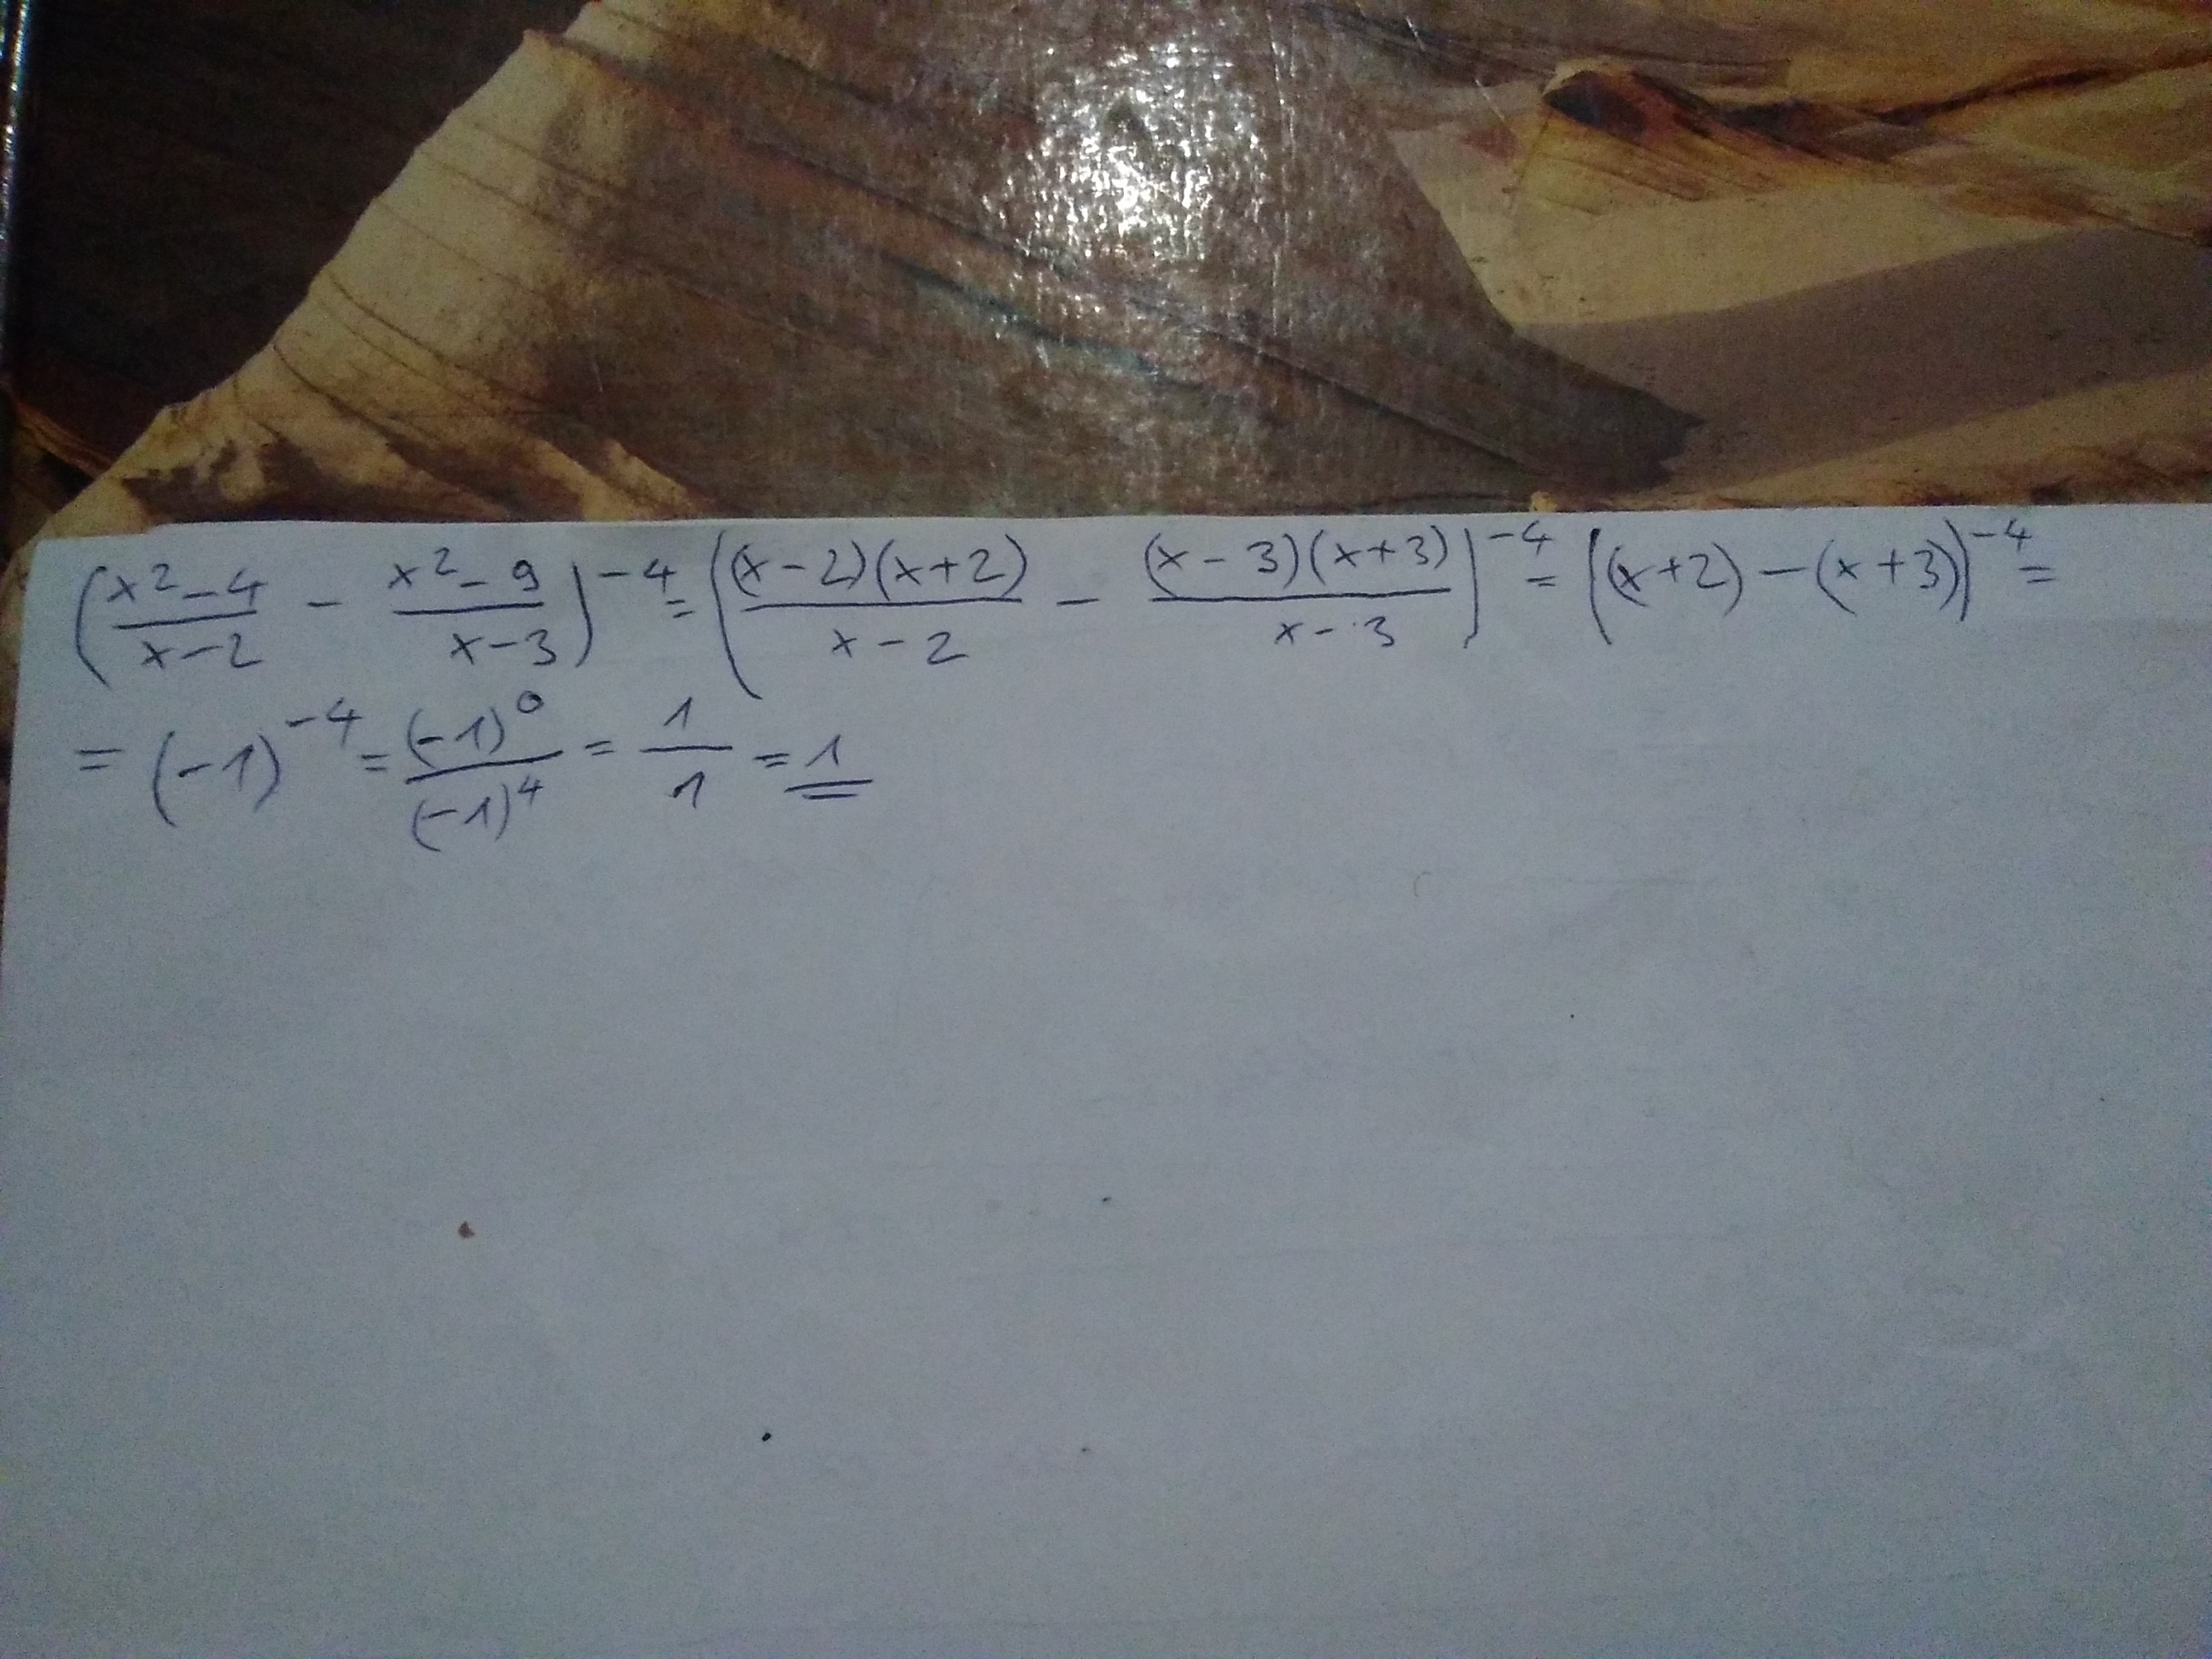 (x²-4/x-2 - x²-9/x-3)⁻⁴ = ((x-2)(x+2)/x-2 - (x-3)(x+3)/x-3)⁻⁴ = ((x+2)-(x+3))⁻⁴ =
= (-1)⁻⁴ = (-1)⁰/(-1)⁴ = 1/1 = 1